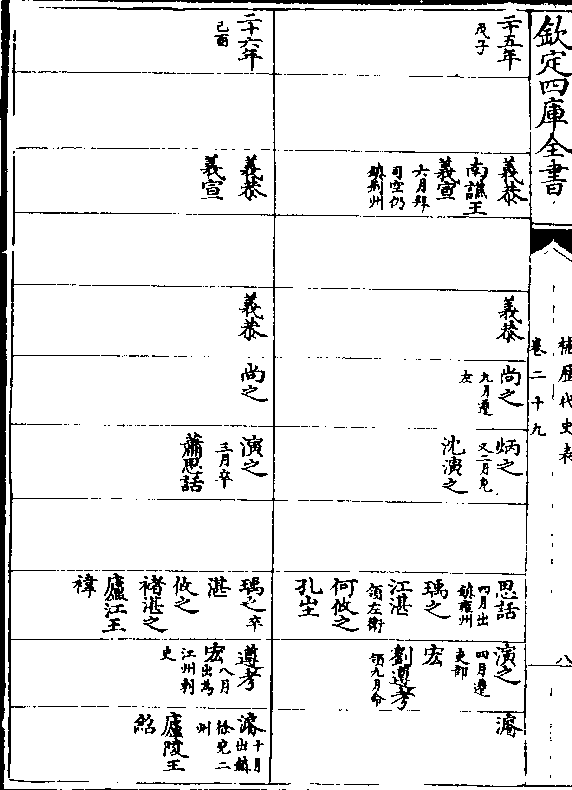 欽定四庫全書
補歷代史表
卷二十九
八
二十五年
戊子
義恭
南譙王
義宣
六月拜
司空仍
鎮荆州
義恭
尚之
九月遷
左
炳之
又二月免
沈演之
思話
四月出
鎮雍州
瑀之
江湛
領左衛
何攸之
孔
演之
四月遷
吏部
宏
劉遵考
九月命
領
濬
二十六年
己酉
義恭
義宣
義恭
尚之
演之
三月卒
蕭思話
瑀之卒
湛
攸之
褚湛之
廬江王
禕
遵考
宏
八月
出為
江州刺
史
濬
十月
出鎮
徐兖二
州
廬陵王
紹